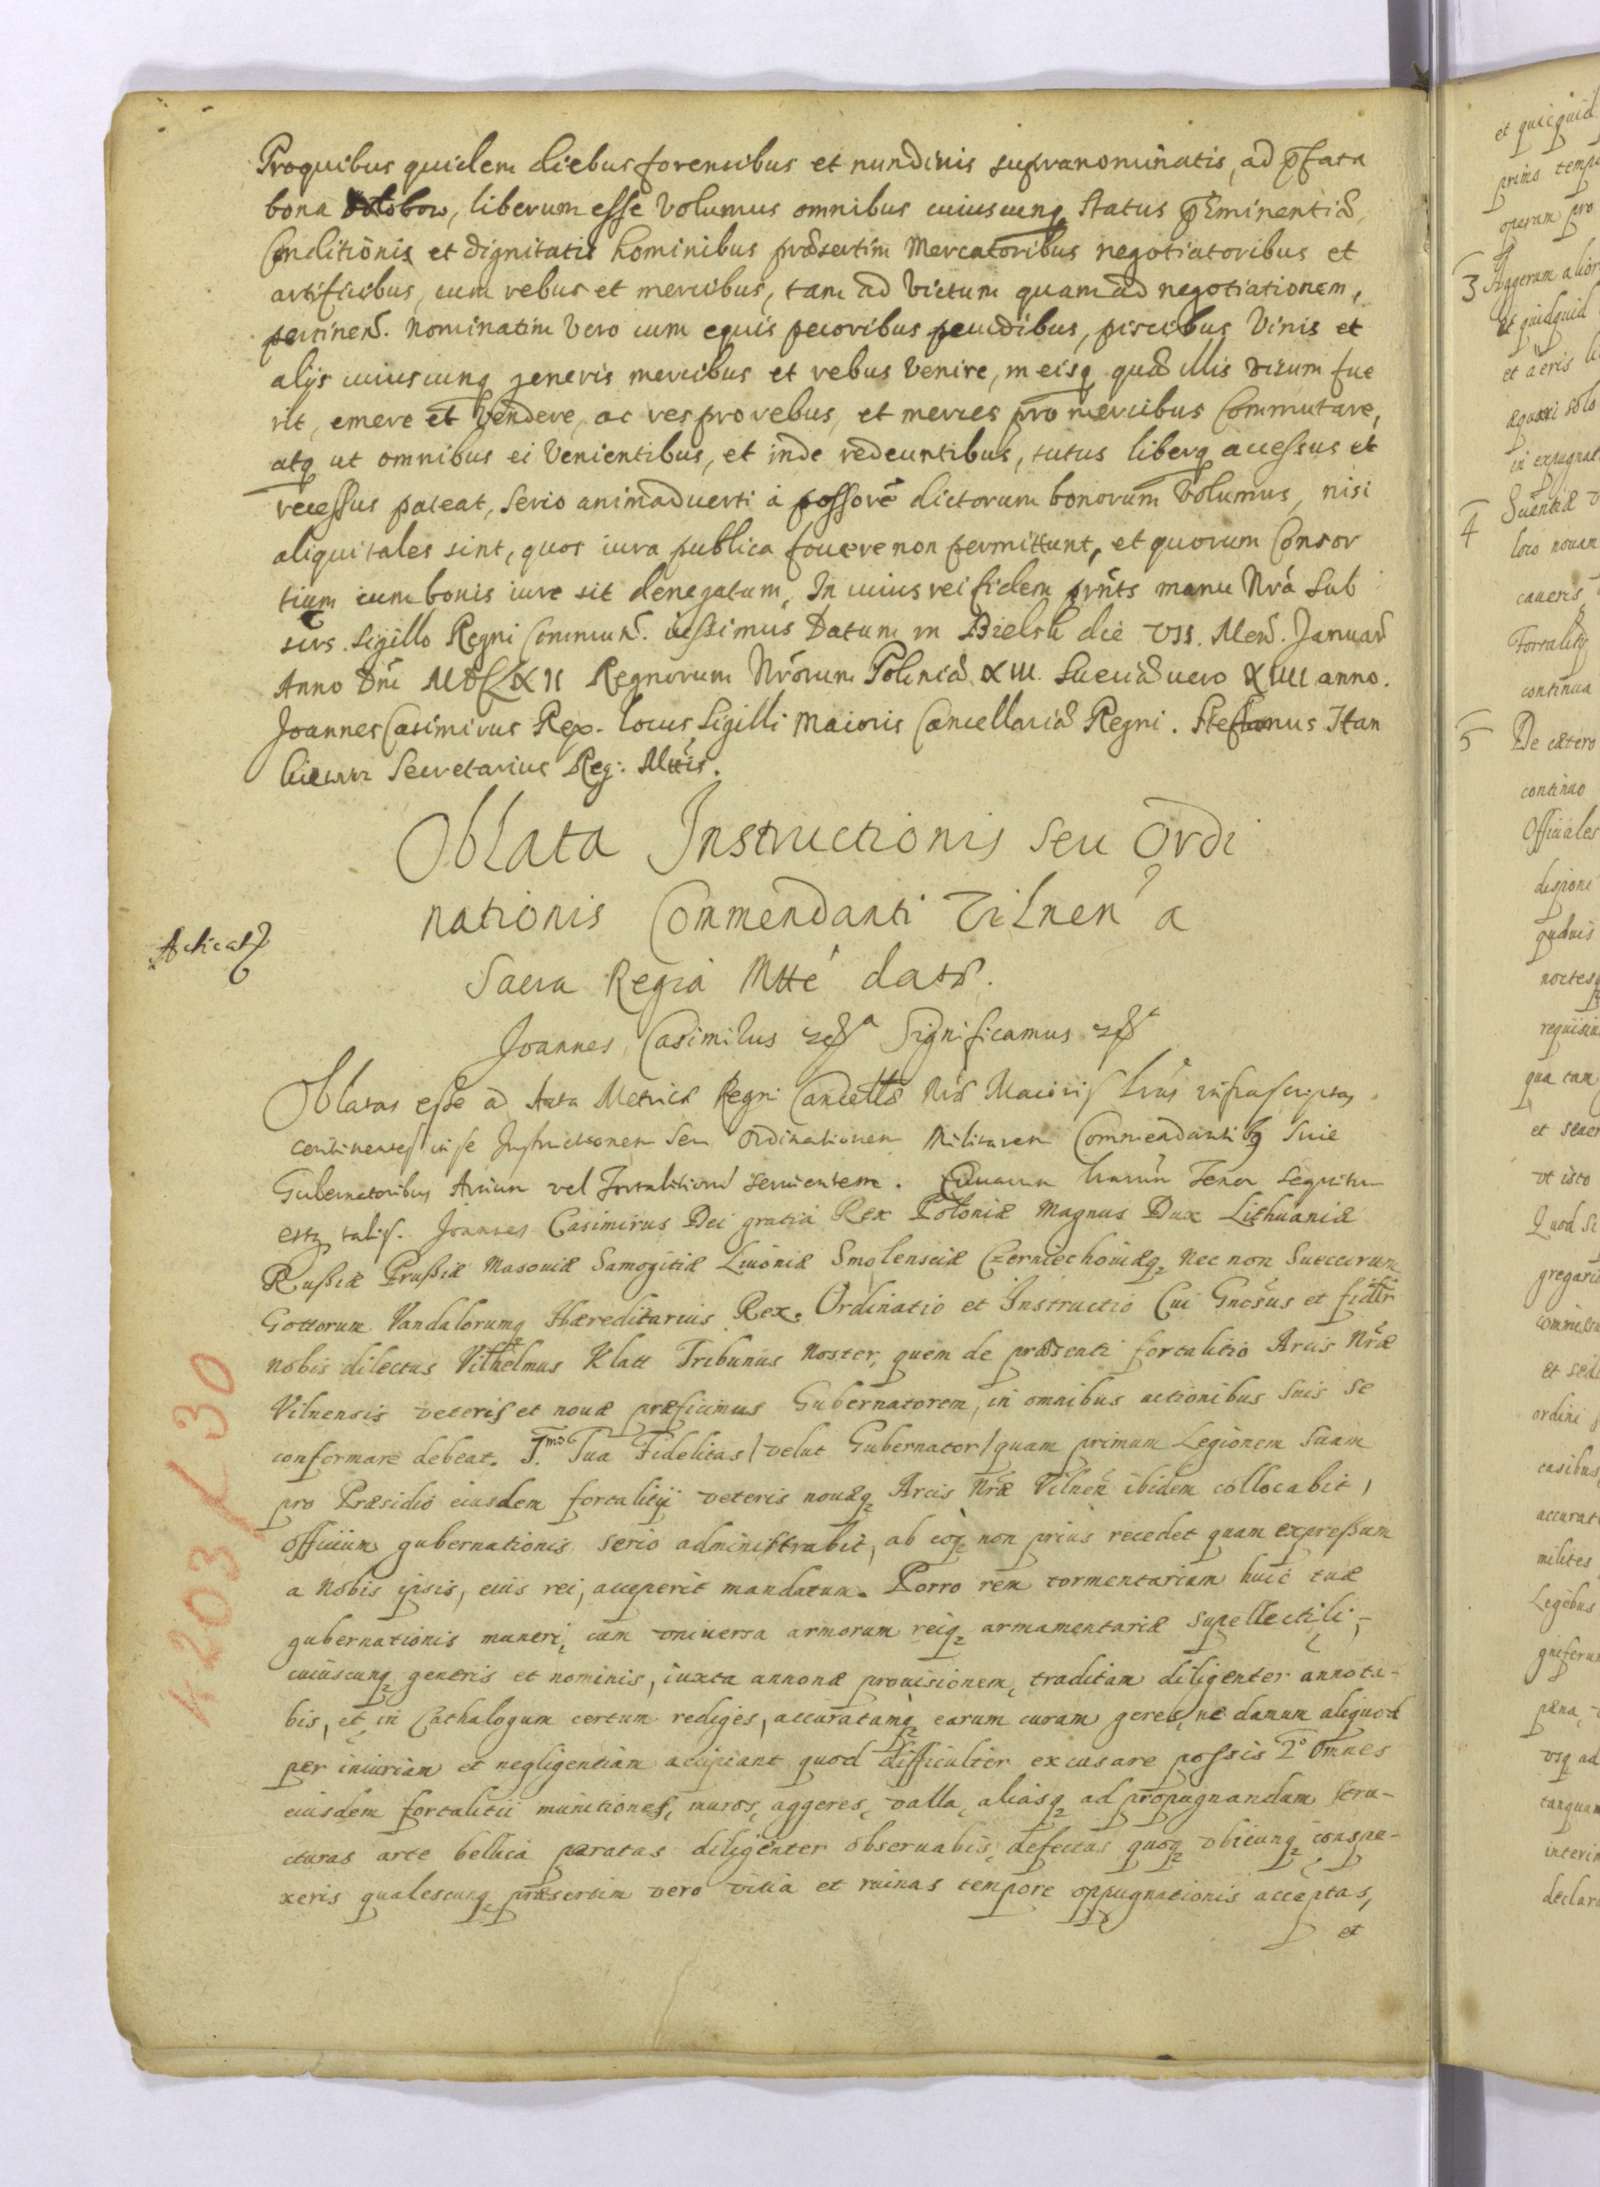 Proquibus quidem diebus forensibus et nundinis supranominatis, ad pfata
bona, liberum esse volumus omnibus cuiuscunq status pEminentiæ,
Conditionis et dignitatis hominibus præsertim Mercatoribus negotiatoribus et
artificibus, cum rebus et mercibus, tam ad victum quam ad negotiationem,
pertinen. nominatim vero cum equis pecoribus pecudibus, piscibus vinis et
alijs cuiuscunq generis mercibus et rebus venire, in eisq quæ illis visum fue
rit, emere et vendere, ac res pro rebus, et merces pro mercibus Commutare,
atq ut omnibus ei venientibus, et inde redeuntibus, tutus liberq accessus et
recessus pateat, serio animaduerti à possore dictorum bonorum volumus, nisi
aliqui tales sint, quos iura publica fouere non permittunt, et quorum Consor
tium cum bonis iure sit denegatum, In cuius rei fidem prnts manu Nrá sub
scrs. Sigillo Regni Commun. iussimus Datum in Bielsk die VII. Men. Januar
Anno Dni MDCLXII Regnorum Nrorum Poloniæ XIII. Sueciæ uero XIIII anno.
Joannes Casimirus Rex. Locus Sigilli Maioris Cancellariæ Regni. Stephanus Han
kiewicz Secretarius Reg: Mttis.
Oblata Instructionis seu Ordi
nationis Commendanti Vilnen a
Acticat
Sacra Regia Mtte datæ.
Joannes Casimirus Significamus
Oblatas esse ad Acta Metrices Regni Cancellæ Nræ Maioris lras infrascriptas
continentes in se Instructionem seu Ordinationem Militarem Commendantibq siue
Gubernatoribus Arcium vel Fortalitiorum seruientem. Quarum lrarum Tenor sequitur
estq talis. Joannes Casimirus Dei gratiâ Rex Poloniæ Magnus Dux Lithuaniæ
Russiæ Prussiæ Masoviæ Samogitiæ Livoniæ Smolensciæ Czerniechoviæq nec non Suecorum
Gottorum Vandalorumq Hæreditarius Rex. Ordinatio et Instructio Cui Gnosus et fidlr
nobis dilectus Vilhelmus Klatt Tribunus Noster, quem de præsenti fortalitio Arcis Nræ
Vilnensis veteris et nouæ præficimus Gubernatorem, in omnibus actionibus suis se
conformare debeat. I.mo Tua Fidelitas / velut Gubernator / quam primum Legionem Suam
pro Præsidio eiusdem fortalitij veteris nouæq Arcis Nræ Vilnen ibidem collocabit,
officium gubernationis serio administrabit, ab eóq non prius recedet quam expressum
a Nobis ipsis, eius rei, acceperit mandatum. Porro rem tormentariam huic tuæ
gubernationis muneri, cum vniuersa armorum reiq armamentariæ supellectili,
cuiuscunq generis et nominis, iuxta annonæ prouisionem, traditam diligenter annota-
bis, et in Cathalogum certum rediges, accuratamq earum curam geres, ne damnum aliquod
per iniuriam et negligentiam accipiant quod difficulter excusare possis 2º Omnes
eiusdem fortalitii munitiones, muros, aggeres, valla, aliasq ad propugnandam stru-
cturas arte bellica paratas diligenter obseruabis, defectus quoq vbicunq conspe-
xeris qualescunq præsertim vero vitia et ruinas tempore oppugnationis acceptas,
et
K203/30